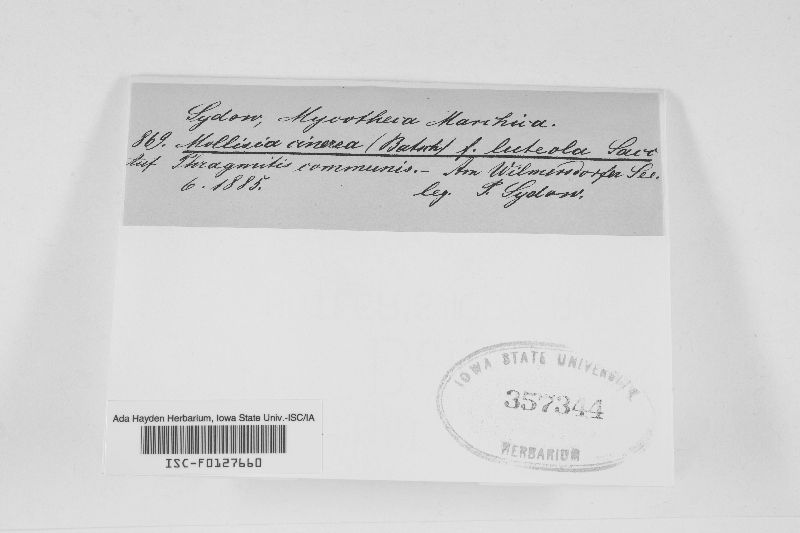 Sydow, Mycotheca Marchica.
869. Mollisia cinerea (Batsch) f. luteola Sacc
Auf Phragmitis communis. – Am Wilmersdorfer See.
6. 1885.
leg. P. Sydow.
IOWA STATE UNIVERSITY
357344
HERBARIUM
Ada Hayden Herbarium, Iowa State Univ.-ISC/IA
ISC-F0127660